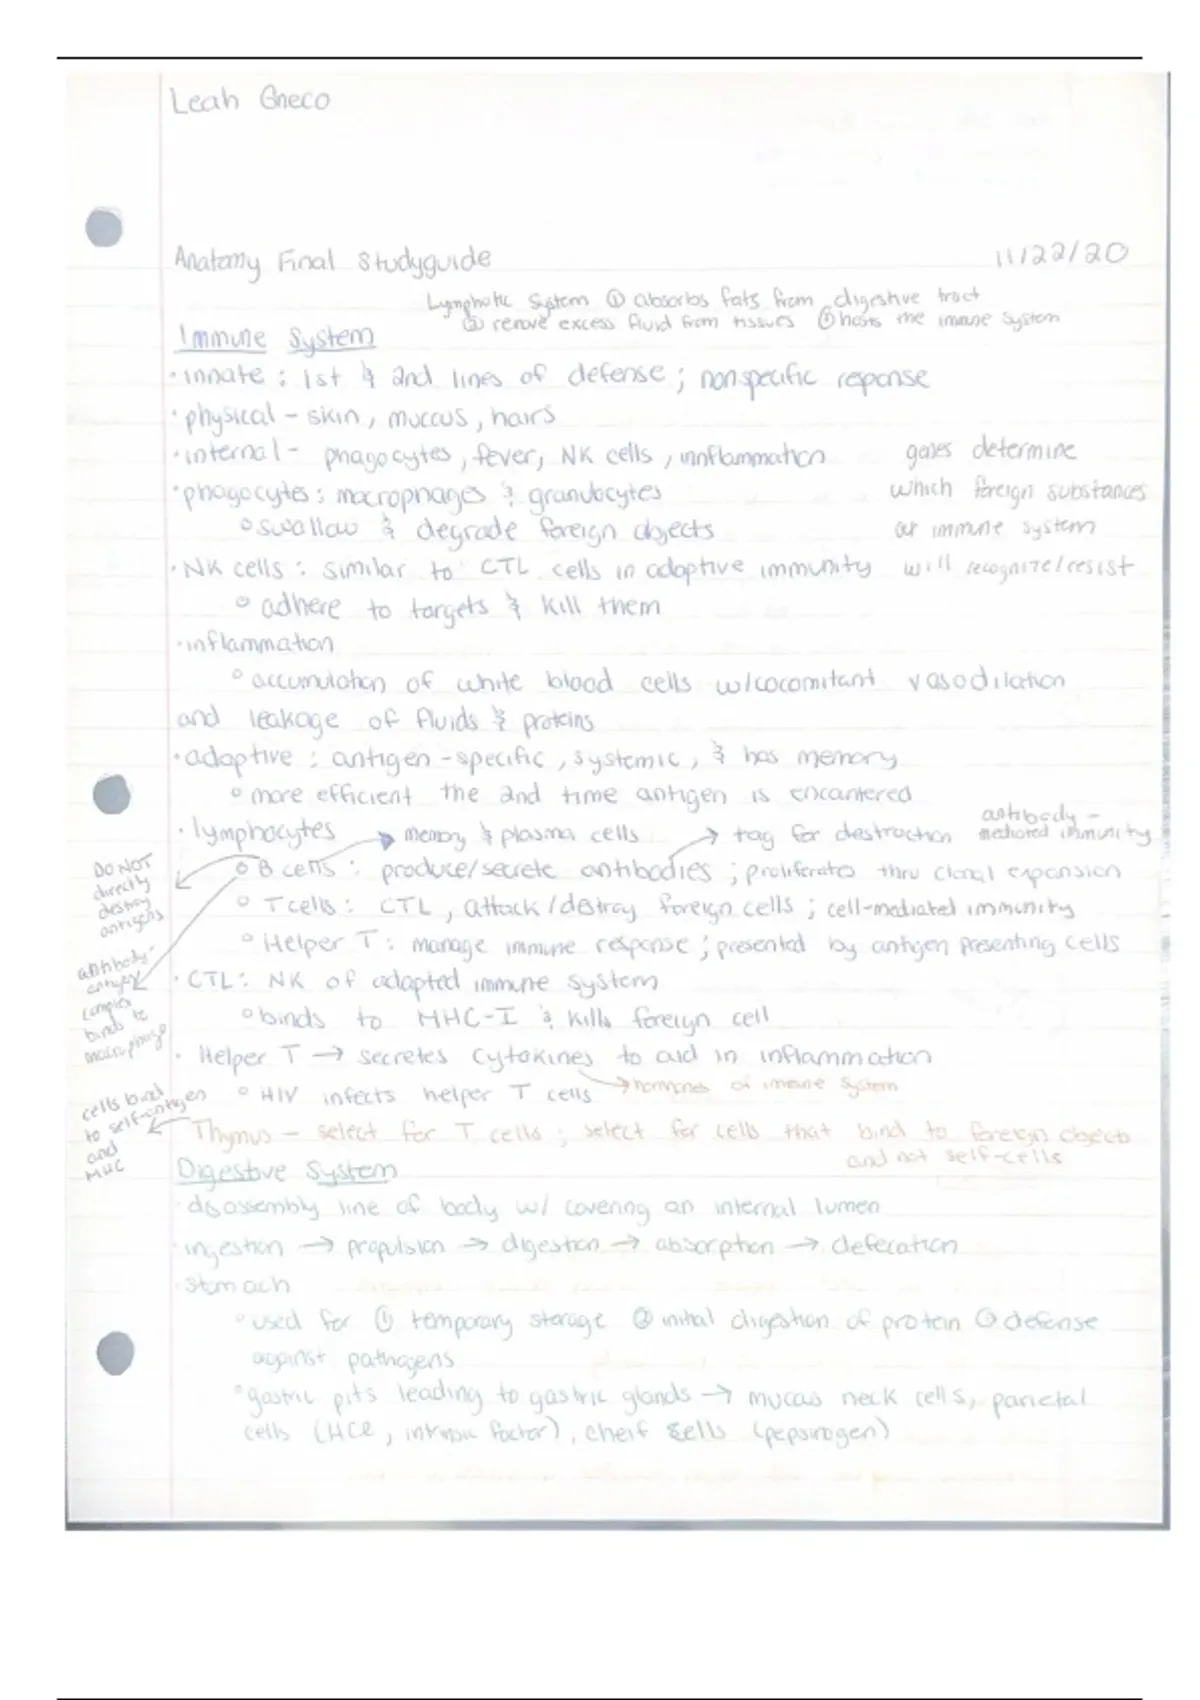 Leah Gneco
Anatomy Final Studyguide 11/22/20
Lymphatic System ① absorbs fats from digestive tract
② remove excess fluid from tissues ③ hosts the immune system
Immune System
• innate : 1st & 2nd lines of defense ; nonspecific reponse
• physical - skin, muccus, hairs
• internal - phagocytes, fever, NK cells, innflammation
genes determine
which foreign substances
our immune system
will recognize/resist
• phagocytes : macrophages & granulocytes
◦ swallow & degrade foreign objects
• NK cells : similar to CTL cells in adaptive immunity
◦ adhere to targets & kill them
• inflammation
◦ accumulation of white blood cells w/cocomitant vasodilation
and leakage of fluids & proteins
• adaptive : antigen-specific, systemic, & has memory
◦ more efficient the 2nd time antigen is encantered
• lymphocytes → memory & plasma cells → tag for destruction
antibody-
mediated immunity
◦ B cells : produce/secrete antibodies ; proliferates thru clonal expansion
DO NOT
directly
destroy
antigens
◦ T cells : CTL, attack/destroy foreign cells ; cell-mediated immunity
◦ Helper T : manage immune response ; presented by antigen presenting cells
antibody-
antigen
complex
binds to
macrophage
• CTL : NK of adapted immune system
◦ binds to MHC-I & kills foreign cell
• Helper T → secretes cytokines to aid in inflammation
→ hormones of immune system
◦ HIV infects helper T cells
cells bind
to self-antigen
and
MHC
Thymus - select for T cells ; select for cells that bind to foreign objects
and not self-cells
Digestive System
• disassembly line of body w/ covering an internal lumen
• ingestion → propulsion → digestion → absorption → defecation
• stomach
◦ used for ① temporary storage ② initial digestion of protein ③ defense
against pathogens
◦ gastric pits leading to gastric glands → mucas neck cells, parietal
cells (HCl, intrinsic factor), cheif cells (pepsinogen)